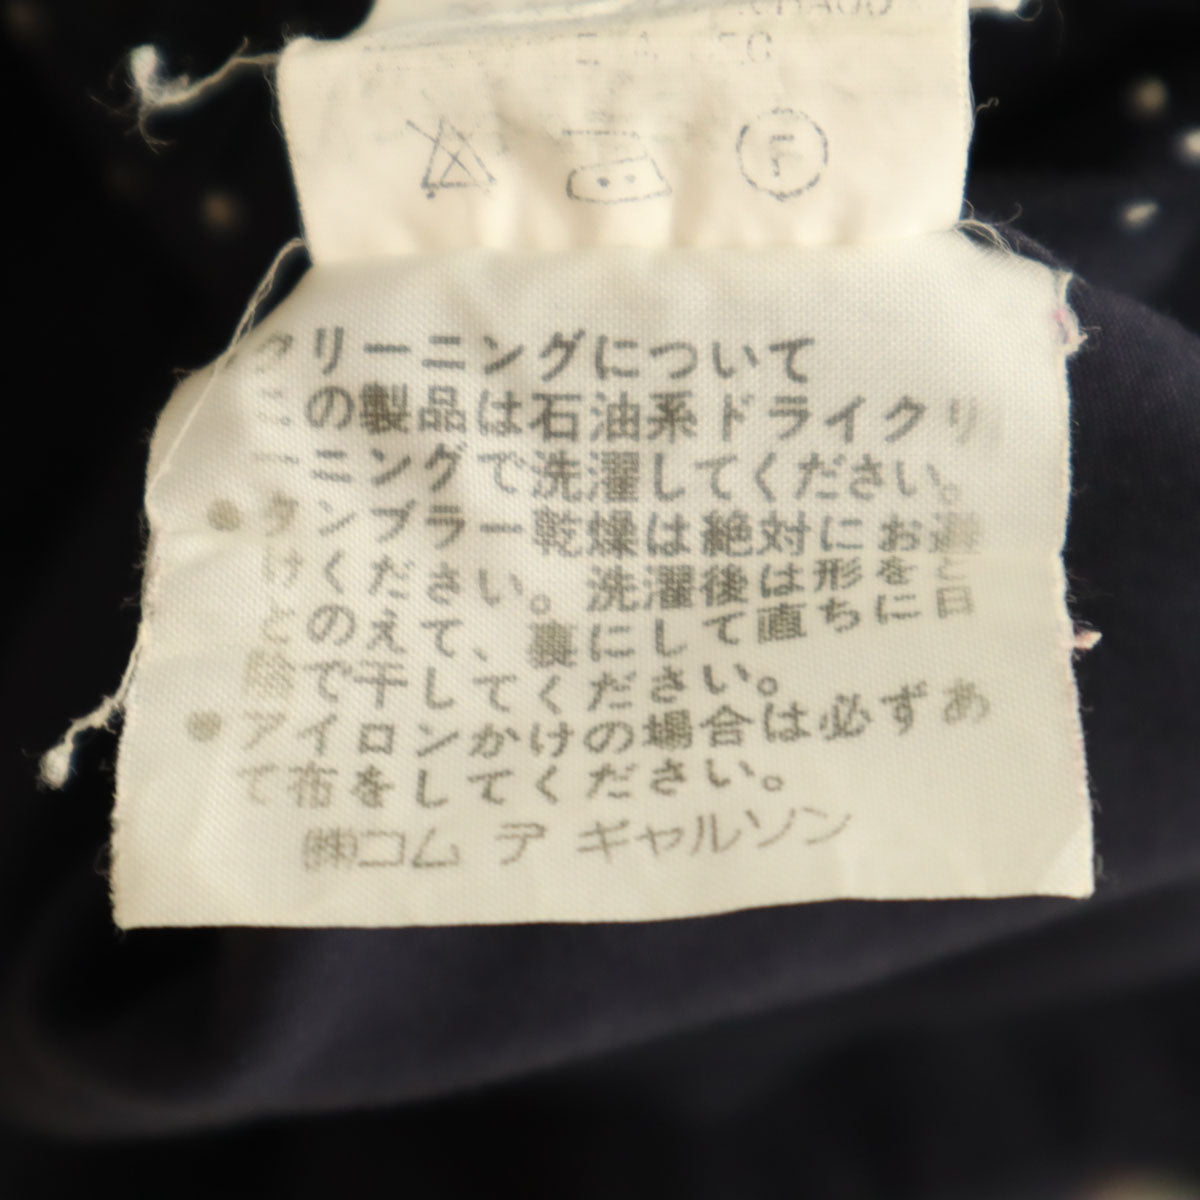 F
クリーニングについて
この製品は石油系ドライクリ
ーニングで洗濯してください。
●タンブラー乾燥は絶対にお避
けください。洗濯後は形をと
とのえて、裏にして直ちに日
陰で干してください。
●アイロンかけの場合は必ずあ
て布をしてください。
㈱コム デ ギャルソン